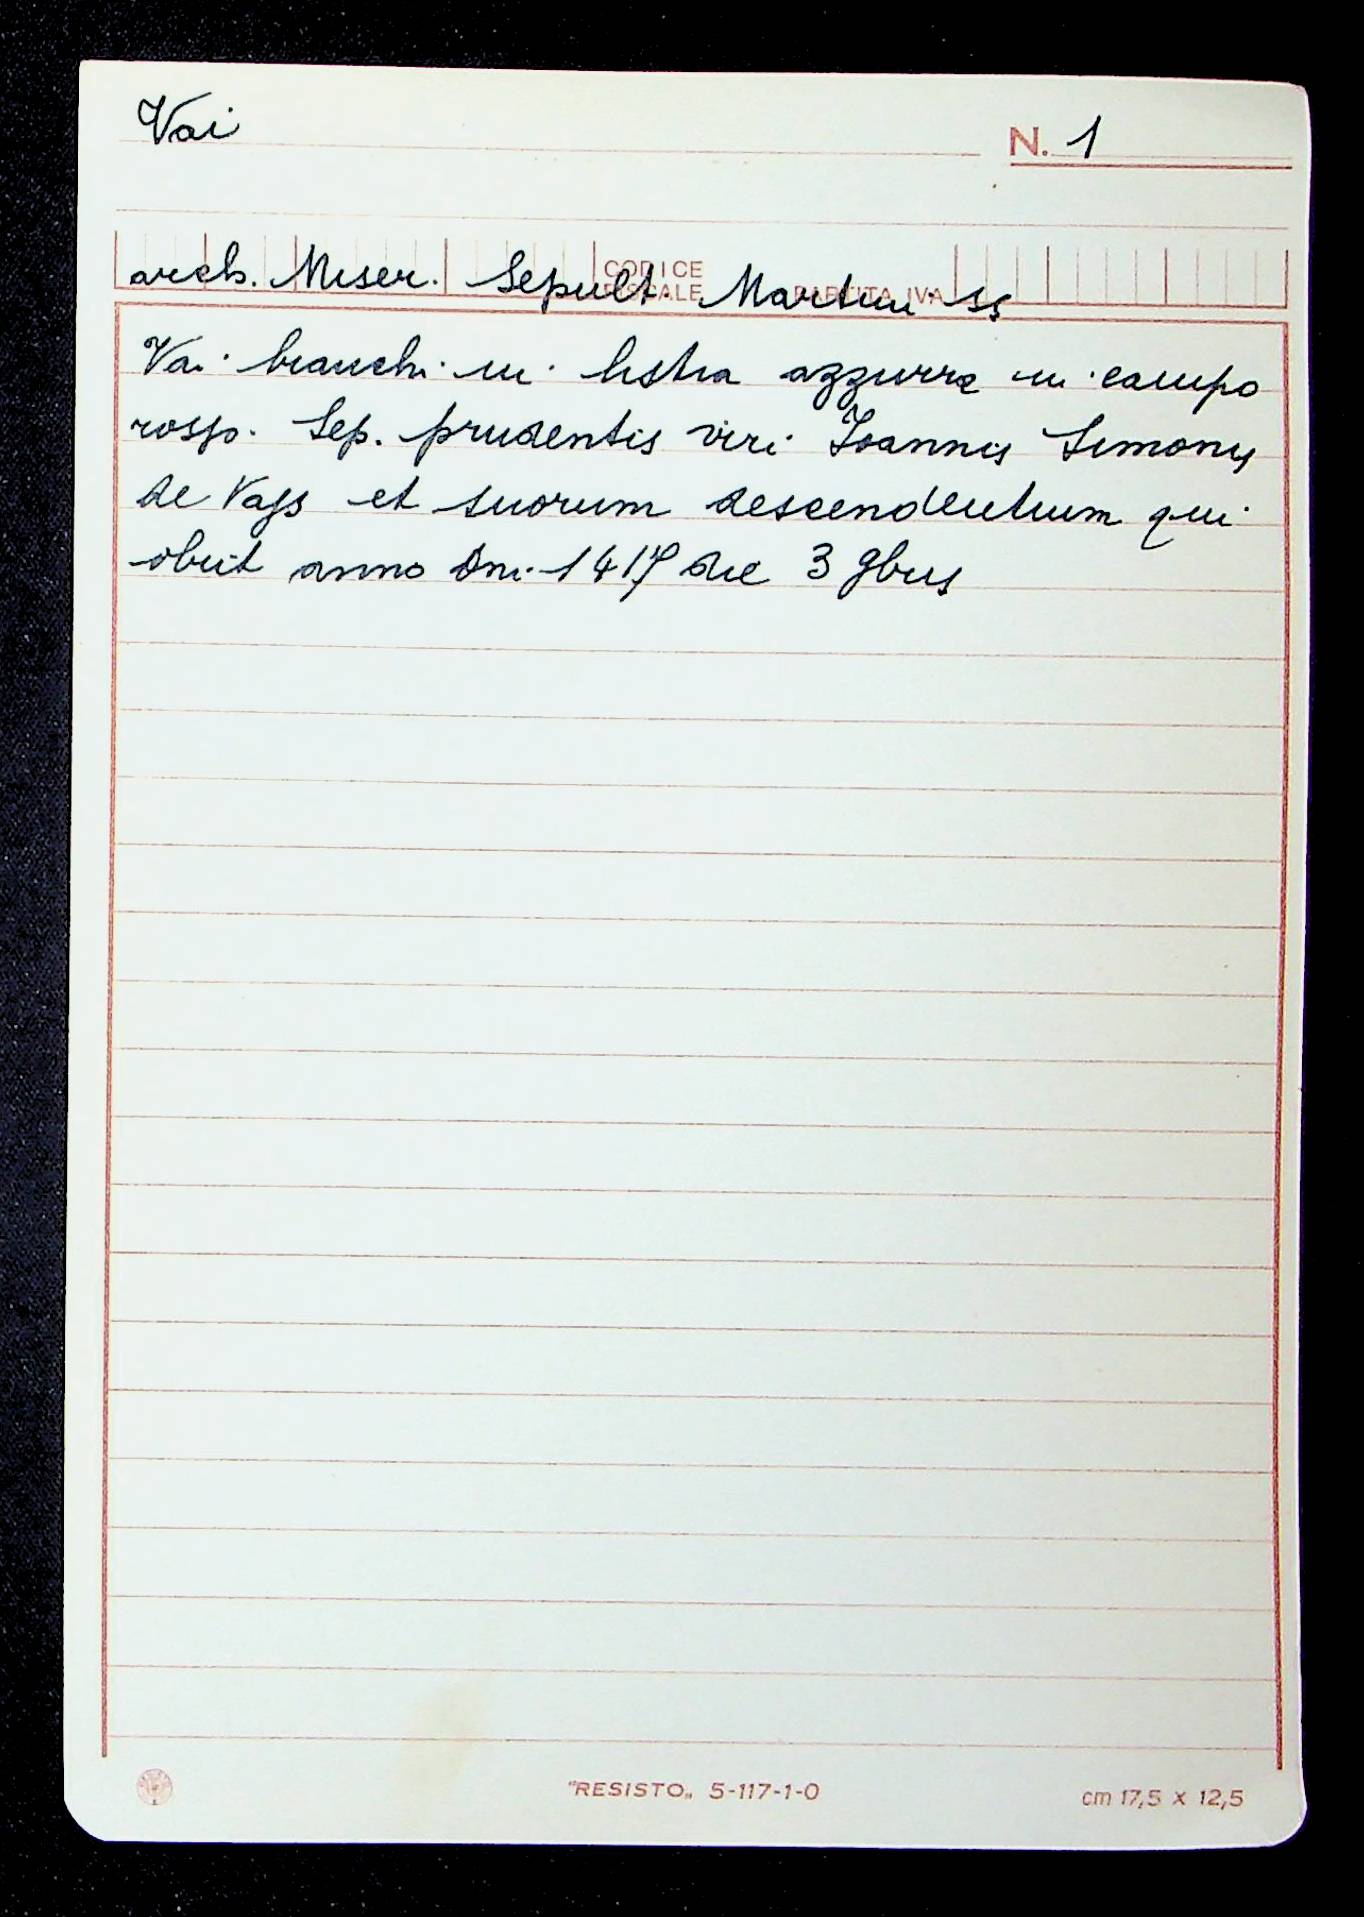 Vai
N. 1
CODICE
FISCALE PARTITA IVA
arch. Miser. Sepult. Martini
Vai bianchi in listra azzurra in campo
rosso. Sep. prudentis viri Ioannis Simonis
de Vajs et suorum descendentium qui
obiit anno Dni 1417 die 3 9bris
"RESISTO„ 5-117-1-0
cm 17,5 x 12,5